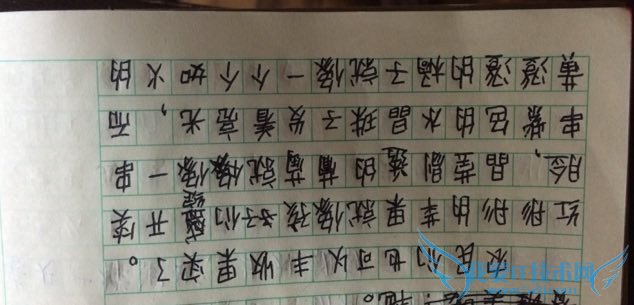 农民们也可以丰收果实了。
红彤彤的苹果就像孩子们绽开笑
脸，晶莹剔透的葡萄就像一串
串紫色的水晶珠子发着亮光，而
黄澄澄的橘子就像一个个如火的